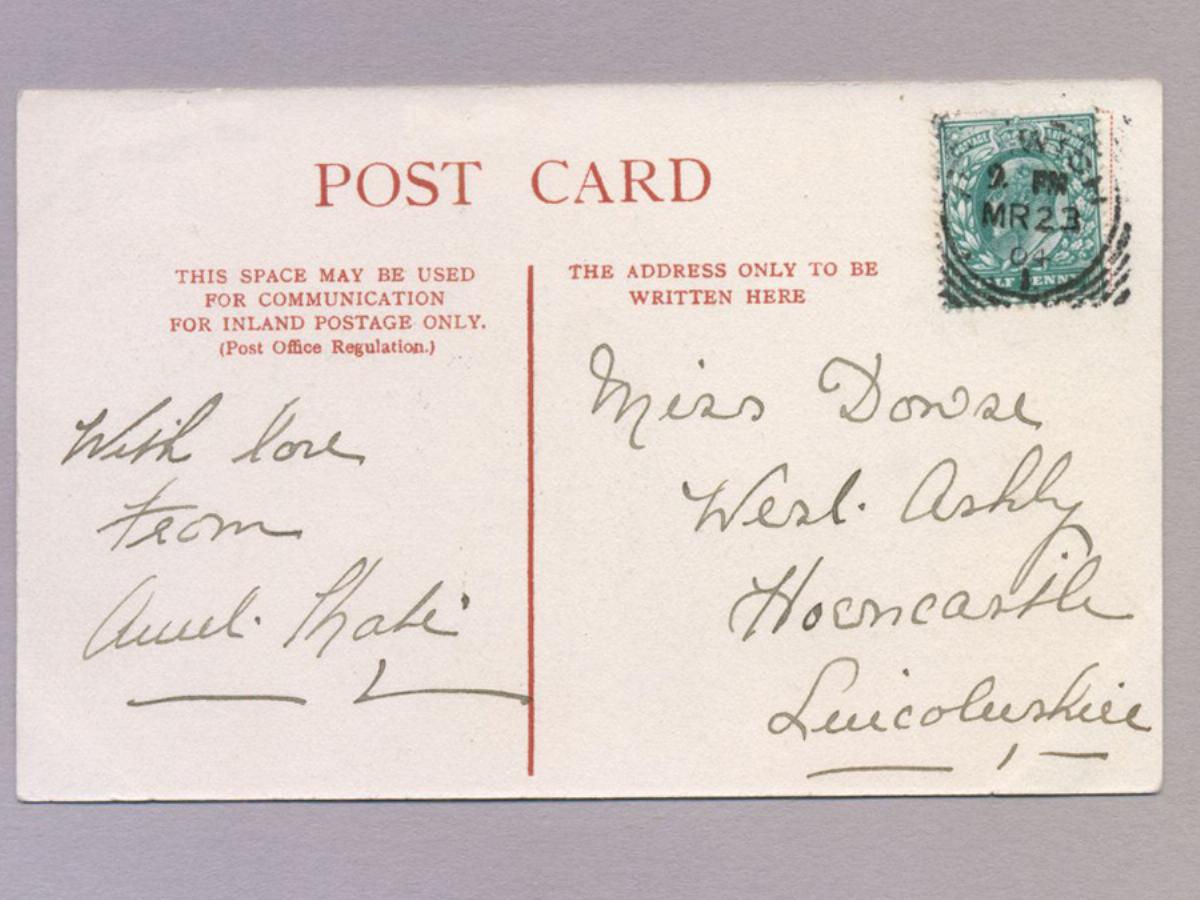 POST CARD
THIS SPACE MAY BE USED
FOR COMMUNICATION
FOR INLAND POSTAGE ONLY.
(Post Office Regulation.)
THE ADDRESS ONLY TO BE
WRITTEN HERE
PM
MR 23
04
With love
From
Miss Dowse
West Ashby
Horncastle
Lincolnshire